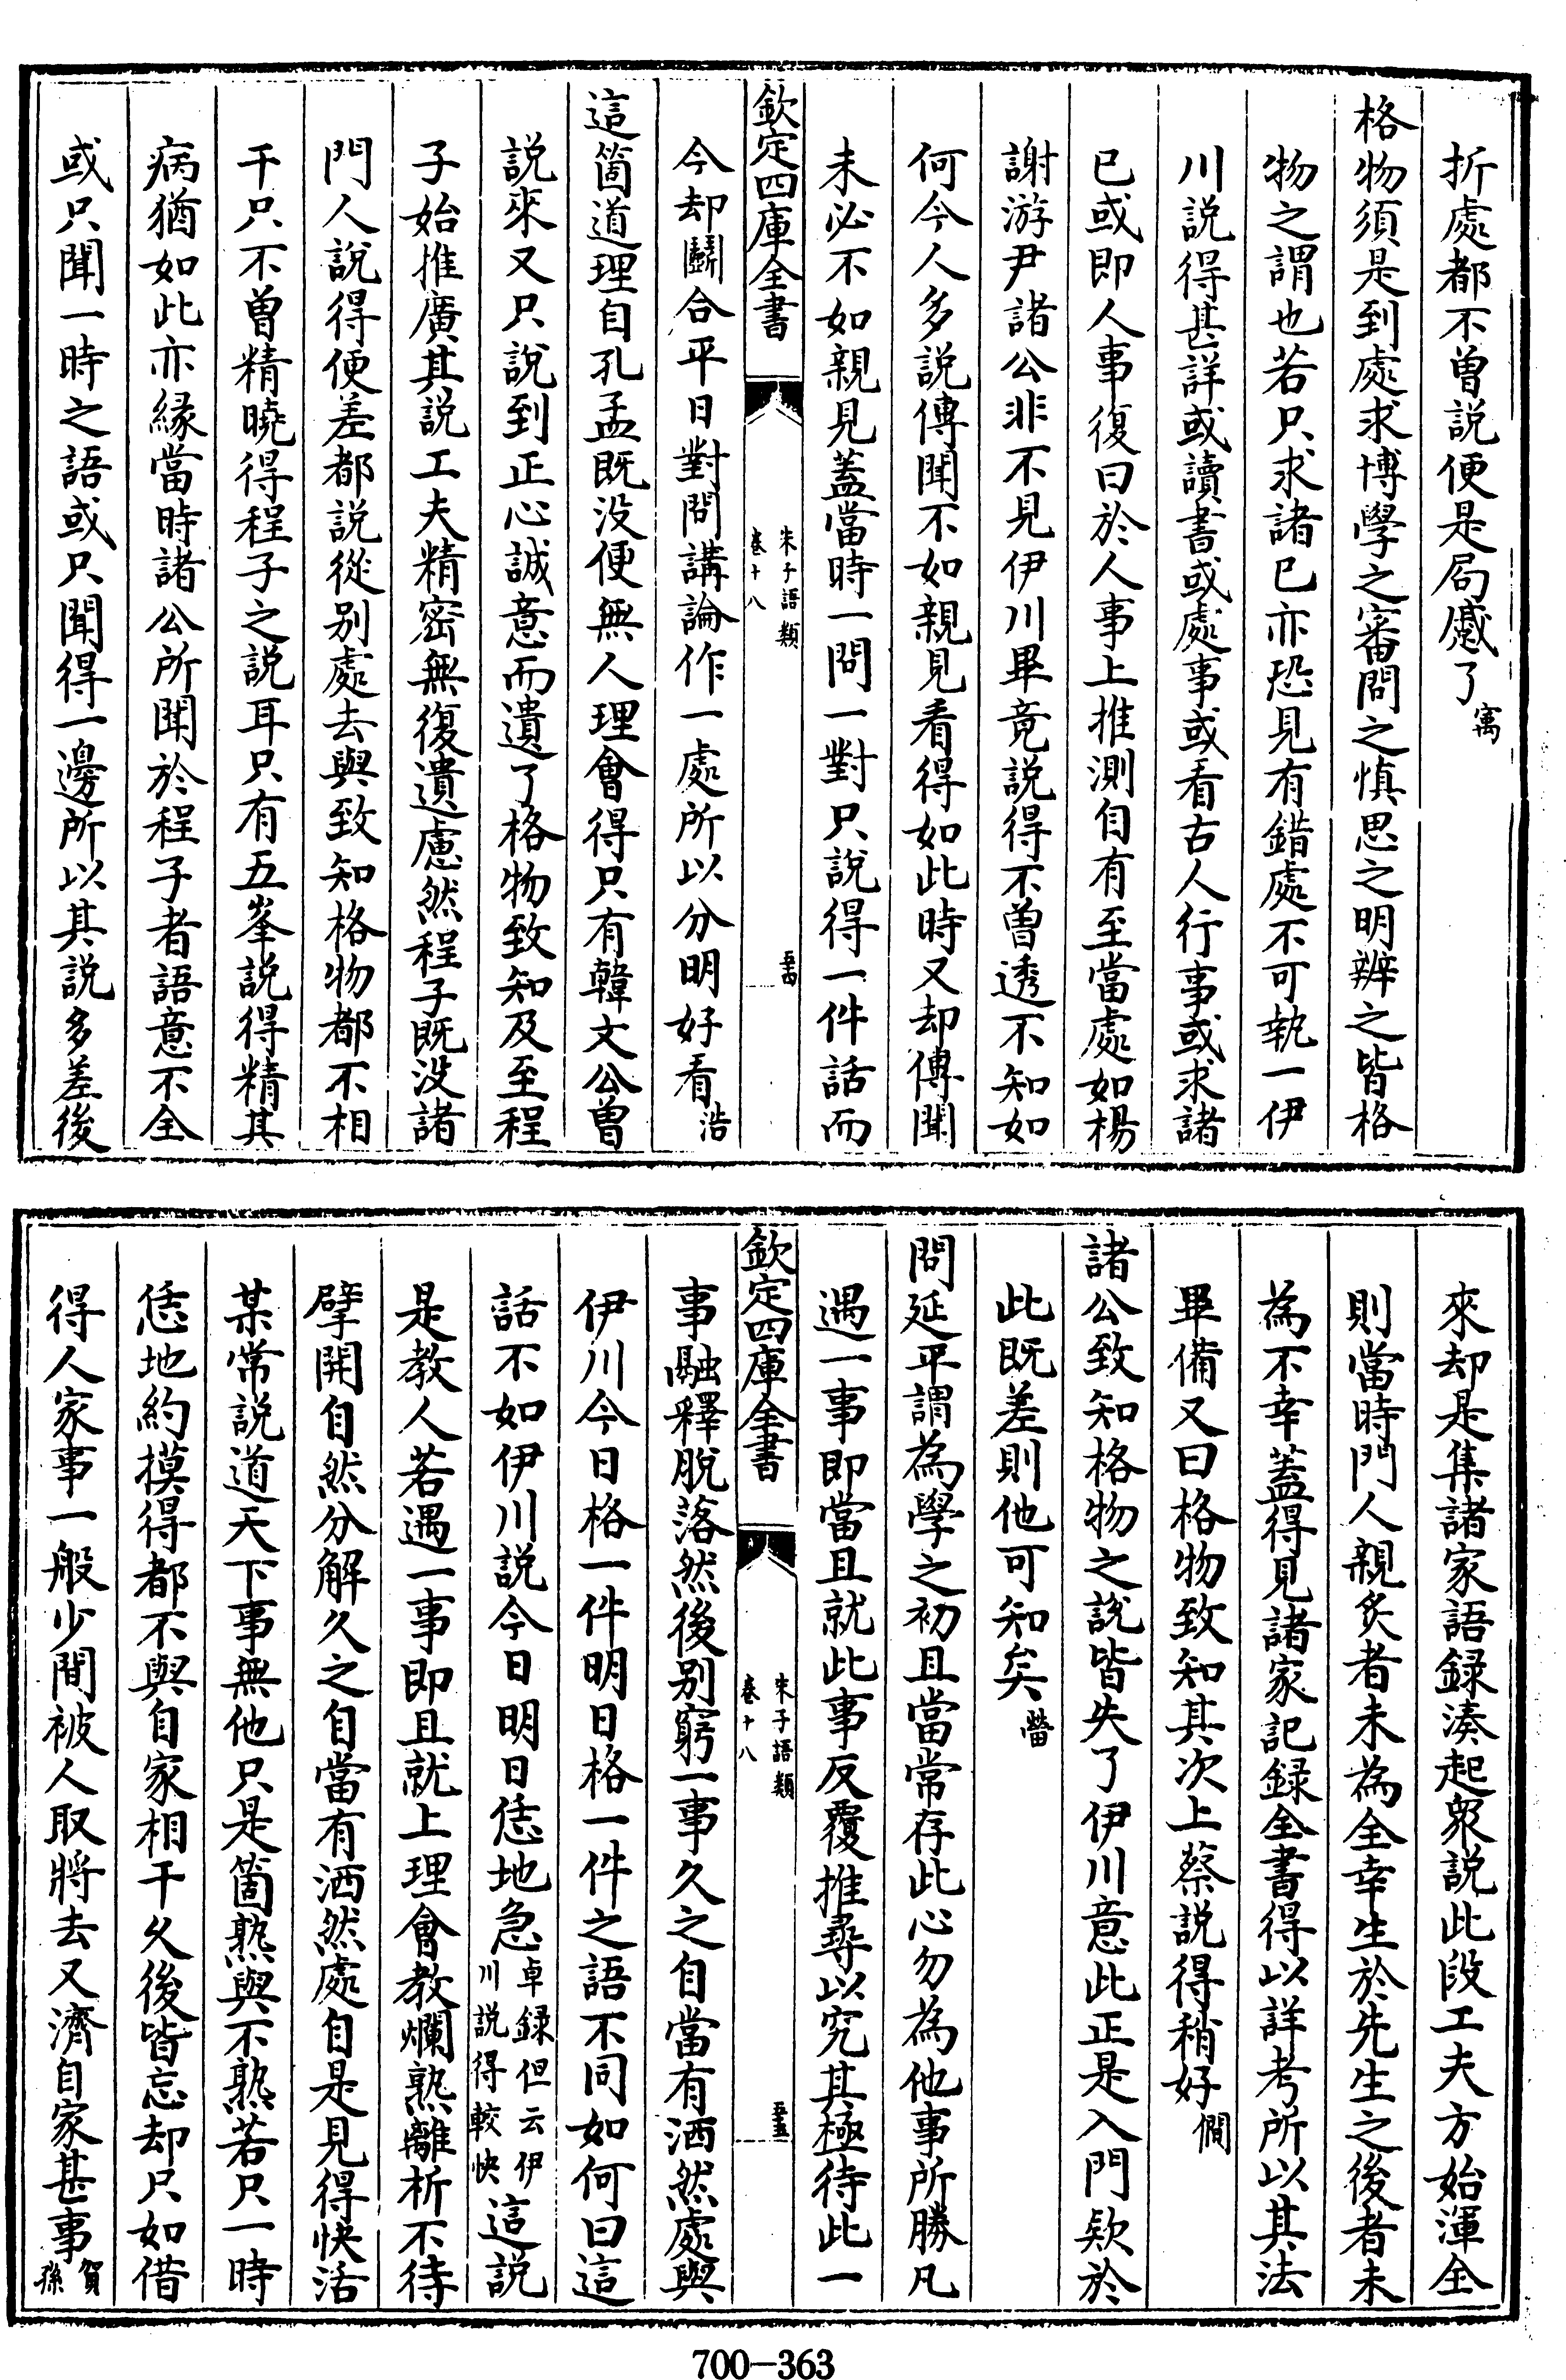 折處都不曽説便是局蹙了㝢
格物須是到處求博學之審問之慎思之明辨之皆格
物之謂也若只求諸已亦恐見有錯處不可執一伊
川説得甚詳或讀書或處事或看古人行事或求諸
已或即人事復曰於人事上推測自有至當處如楊
謝游尹諸公非不見伊川畢竟説得不曽透不知如
何今人多説傳聞不如親見看得如此時又却傳聞
未必不如親見蓋當時一問一對只說得一件話而
欽定四庫全書
朱子語類
卷十八
五十四
今却鬭合平日對問講論作一處所以分明好看浩
這箇道理自孔孟既没便無人理會得只有韓文公曽
説來又只說到正心誠意而遺了格物致知及至程
子始推廣其説工夫精密無復遺慮然程子既没諸
門人說得便差都説從别處去與致知格物都不相
干只不曽精曉得程子之説耳只有五峯説得精其
病猶如此亦緣當時諸公所聞於程子者語意不全
或只聞一時之語或只聞得一邊所以其説多差後
來却是集諸家語録湊起衆説此段工夫方始渾全
則當時門人親炙者未為全幸生於先生之後者未
為不幸蓋得見諸家記録全書得以詳考所以其法
畢備又曰格物致知其次上蔡説得稍好僩
諸公致知格物之說皆失了伊川意此正是入門欵於
此既差則他可知矣㽦
問延平謂為學之初且當常存此心勿為他事所勝凡
遇一事即當且就此事反覆推尋以究其極待此一
欽定四庫全書
朱子語類
卷十八
五十五
事融釋脱落然後别窮一事久之自當有洒然處與
伊川今日格一件明日格一件之語不同如何曰這
話不如伊川説今日明日恁地急卓録但云伊川説得較快這説
是教人若遇一事即且就上理會教爛熟離析不待
擘開自然分解久之自當有洒然處自是見得快活
某常説道天下事無他只是箇熟與不熟若只一時
恁地約摸得都不與自家相干久後皆忘却只如借
得人家事一般少間被人取將去又濟自家甚事賀孫
700-363